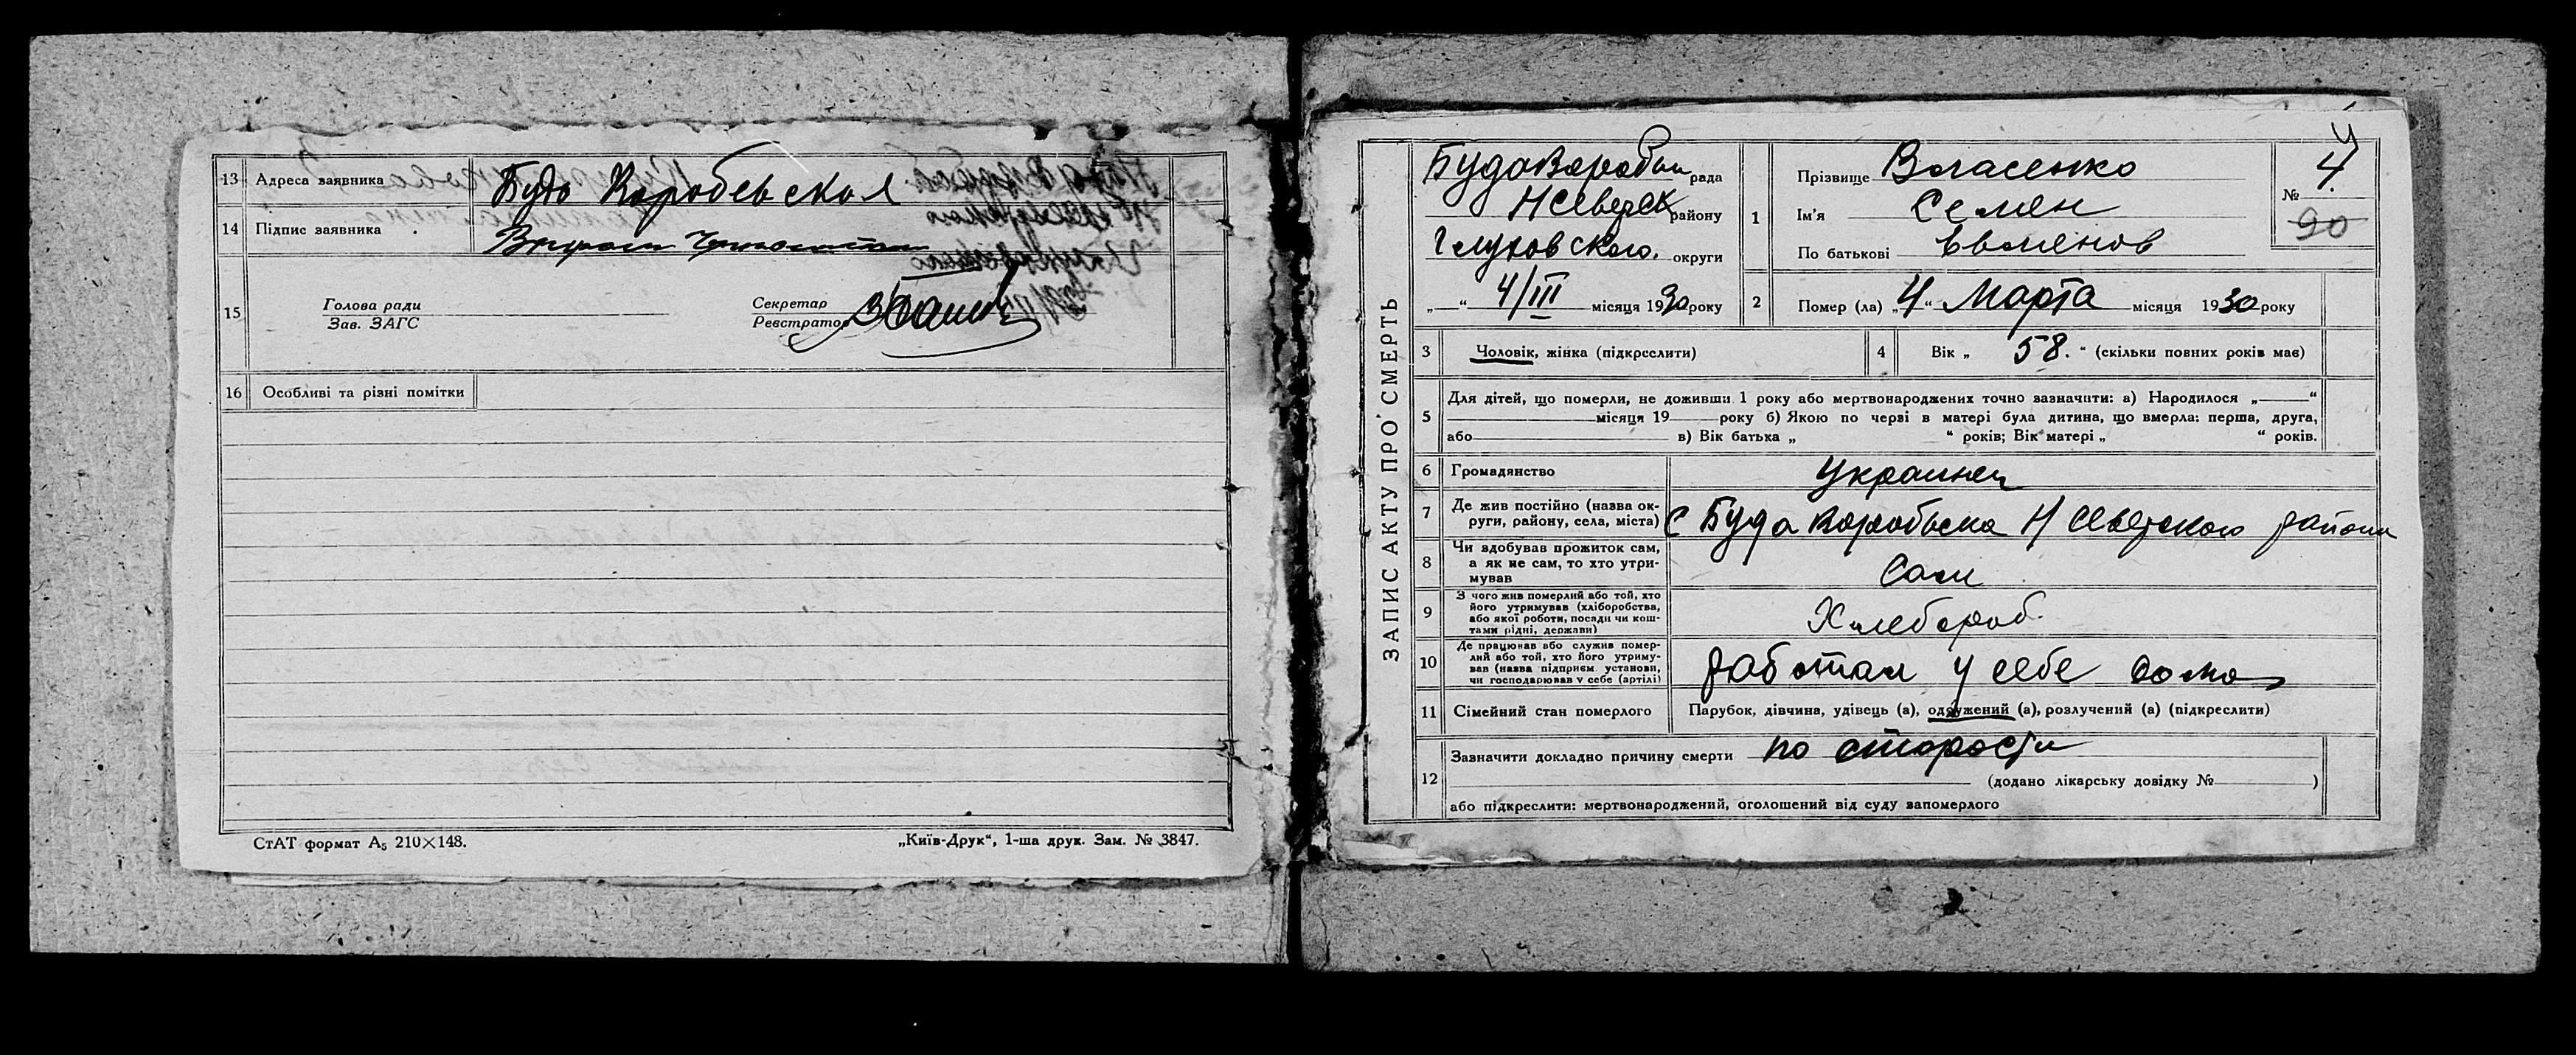 13 Адреса заявника Буда Воробевская
14 Підпис заявника
15 Голова ради
Зав. ЗАГС
Секретар
Реєстратор
16 Особливі та різні помітки
СтАТ формат А5 210×148.
„Київ-Друк“, 1-ша друк. Зам. № 3847.
ЗАПИС АКТУ ПРО СМЕРТЬ
БудаВоробьи рада
Н Северск району
Глуховского. округи
„ “ 4/III місяця 1930 року
1 Прізвище Власенко
Ім'я Семен
По батькові
№ 4.
90
2 Помер (ла) „4“ Марта місяця 1930 року
3 Чоловік, жінка (підкреслити)
4 Вік „ 58. “ (скільки повних років має)
5 Для дітей, що померли, не доживши 1 року або мертвонароджених точно зазначити: а) Народилося „ “
місяця 19 року б) Якою по черві в матері була дитина, що вмерла: перша, друга,
або в) Вік батька „ “ років; Вік матері „ “ років.
6 Громадянство Украинец
7 Де жив постійно (назва ок-
руги, району, села, міста) С Буда Воробьевка Н Северского района
8 Чи здобував прожиток сам,
а як не сам, то хто утри-
мував Сам
9 З чого жив померлий або той, хто
його утримував (хліборобства,
або якої роботи, посади чи кош-
тами рідні, держави) Хлебороб.
10 Де працював або служив помер-
лий або той, хто його утриму-
вав (назва підприєм. установи,
чи господарював у себе (артілі) работал у себе дома
11 Сімейний стан померлого Парубок, дівчина, удівець (а), одружений (а), розлучений (а) (підкреслити)
12 Зазначити докладно причину смерти по старости
(додано лікарську довідку № )
або підкреслити: мертвонароджений, оголошений від суду запомерлого